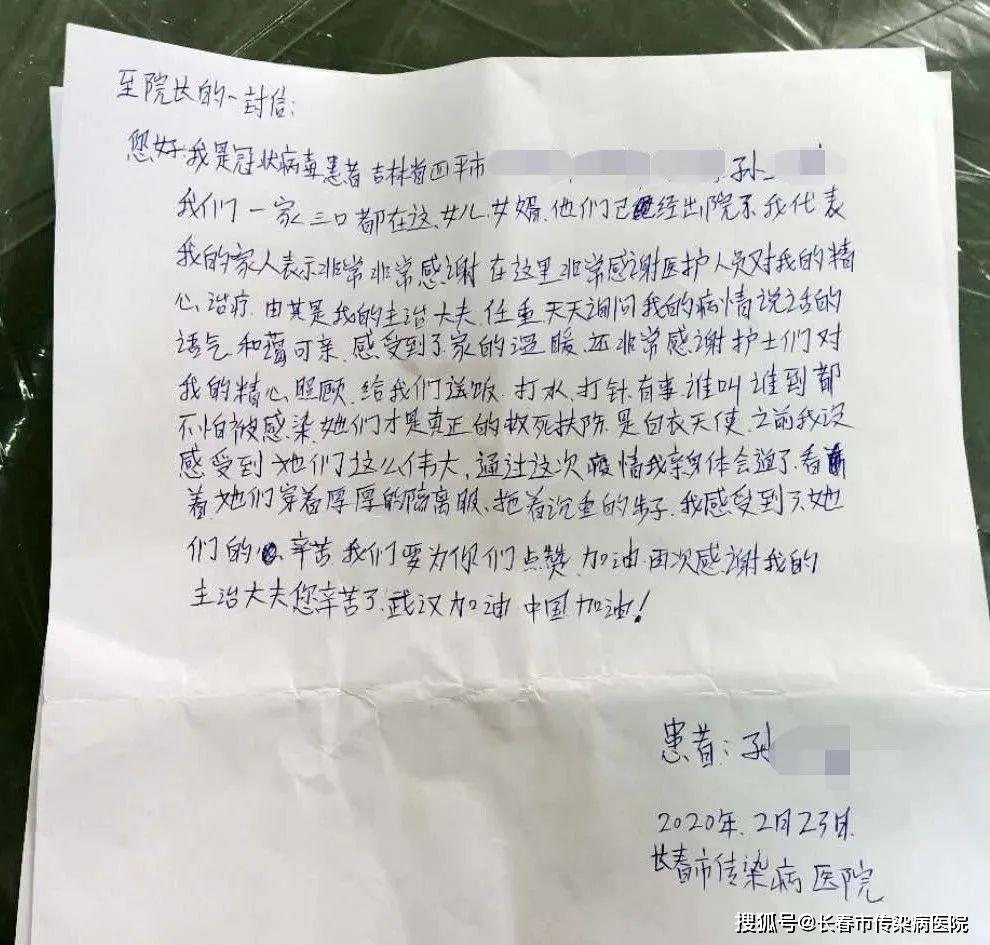 至院长的一封信:
您好.我是冠状病毒患者 吉林省四平市 孙
我们一家三口都在这、女儿.女婿.他们已经出院了.我代表
我的家人表示非常非常感谢 在这里非常感谢医护人员对我的精
心治疗.由其是我的主治大夫.任重.天天询问我的病情说话的
语气和蔼可亲.感受到了家的温暖.还非常感谢护士们对
我的精心照顾.给我们送饭.打水.打针.有事.谁叫谁到都
不怕被感染.她们才是真正的救死扶伤.是白衣天使.之前我没
感受到她们这么伟大,通过这次疫情我亲身体会道了.看
着她们穿着厚厚的隔离服、拖着沉重的步子.我感受到了她
们的心辛苦 我们要为你们点赞.加油.再次感谢我的
主治大夫您辛苦了.武汉加油 中国加油!
患者:孙
2020年.2月23日.
长春市传染病医院
搜狐号@长春市传染病医院